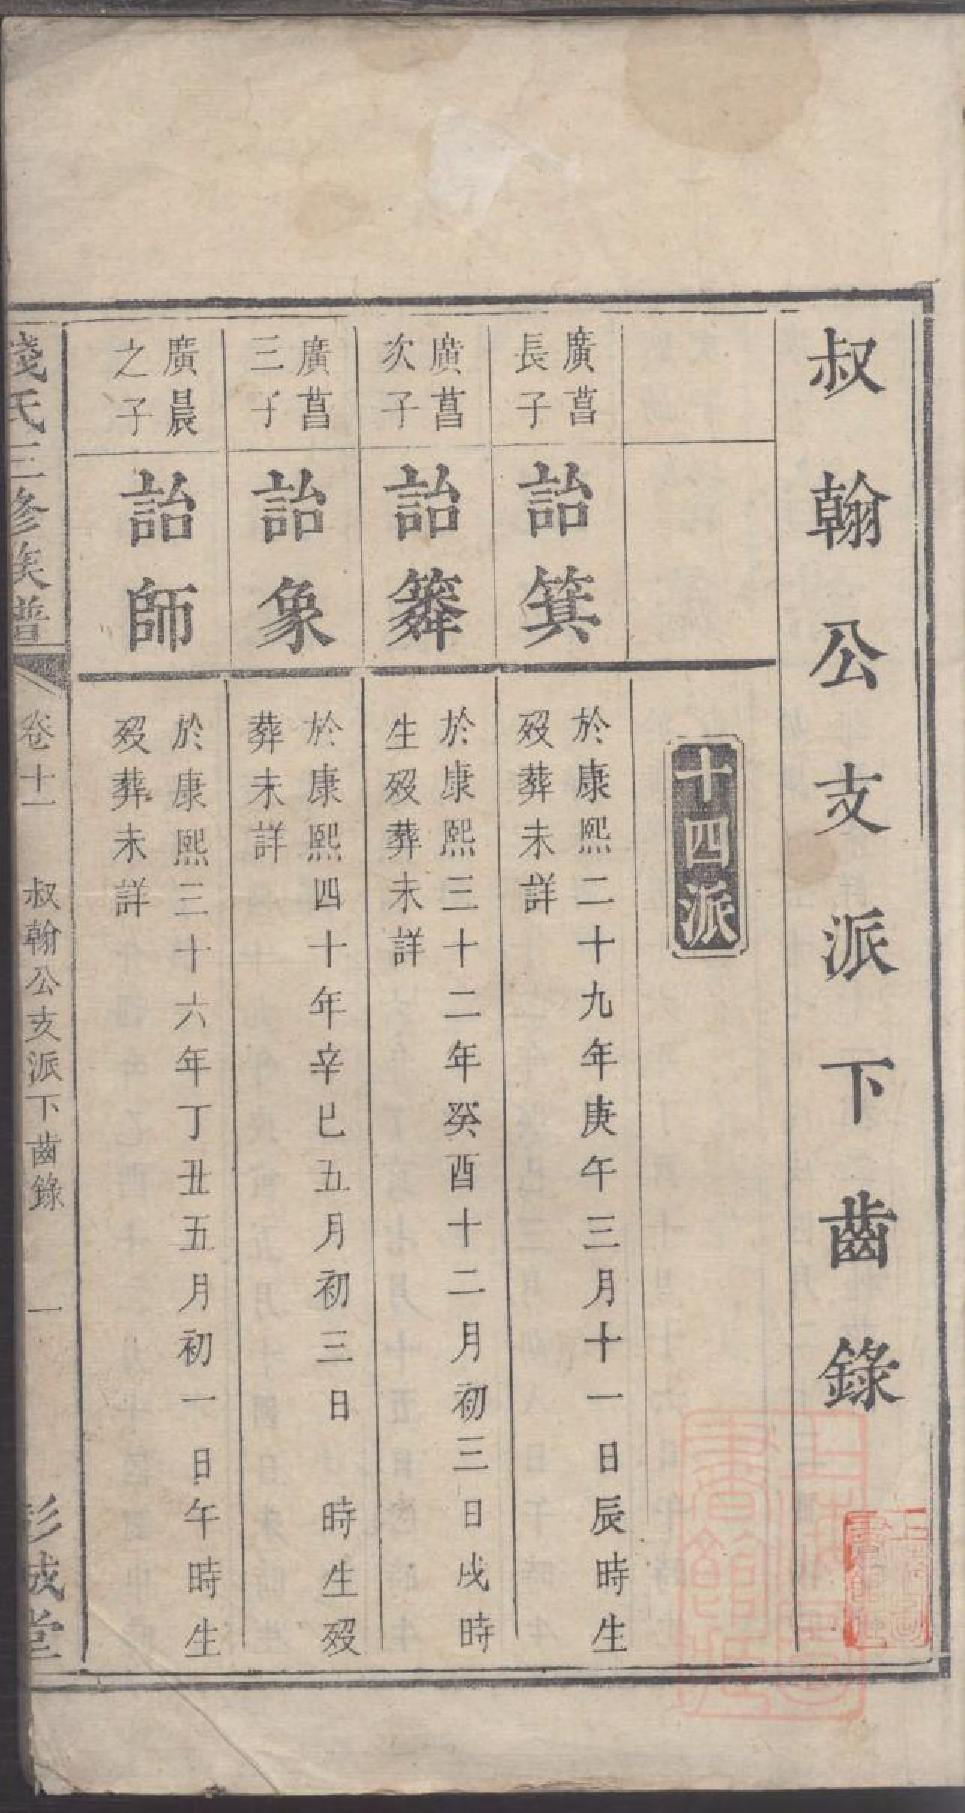 叔翰公支派下齒錄
十四派
廣菖
長子
詒箕
於康熙二十九年庚午三月十一日辰時生
歿葬未詳
廣菖
次子
詒簳
於康熙三十二年癸酉十二月初三日戌時
生歿葬未詳
廣菖
三子
詒象
於康熙四十年辛巳五月初三日 時生歿
葬未詳
廣晨
之子
詒師
於康熙三十六年丁丑五月初一日午時生
歿葬未詳
錢氏三修族譜 卷十一 叔翰公支派下齒錄 一 彭城堂